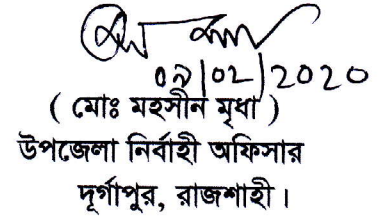 ০৯/০২/2020
( মোঃ মহসীন মৃধা )
উপজেলা নির্বাহী অফিসার
দূর্গাপুর, রাজশাহী।